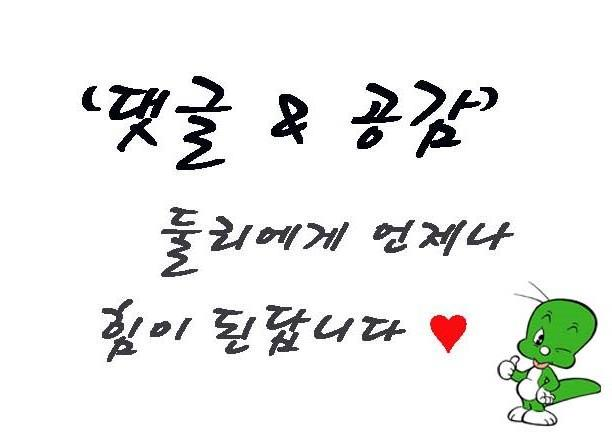 '댓글 & 공감'
둘리에게 언제나
힘이 된답니다 ♥